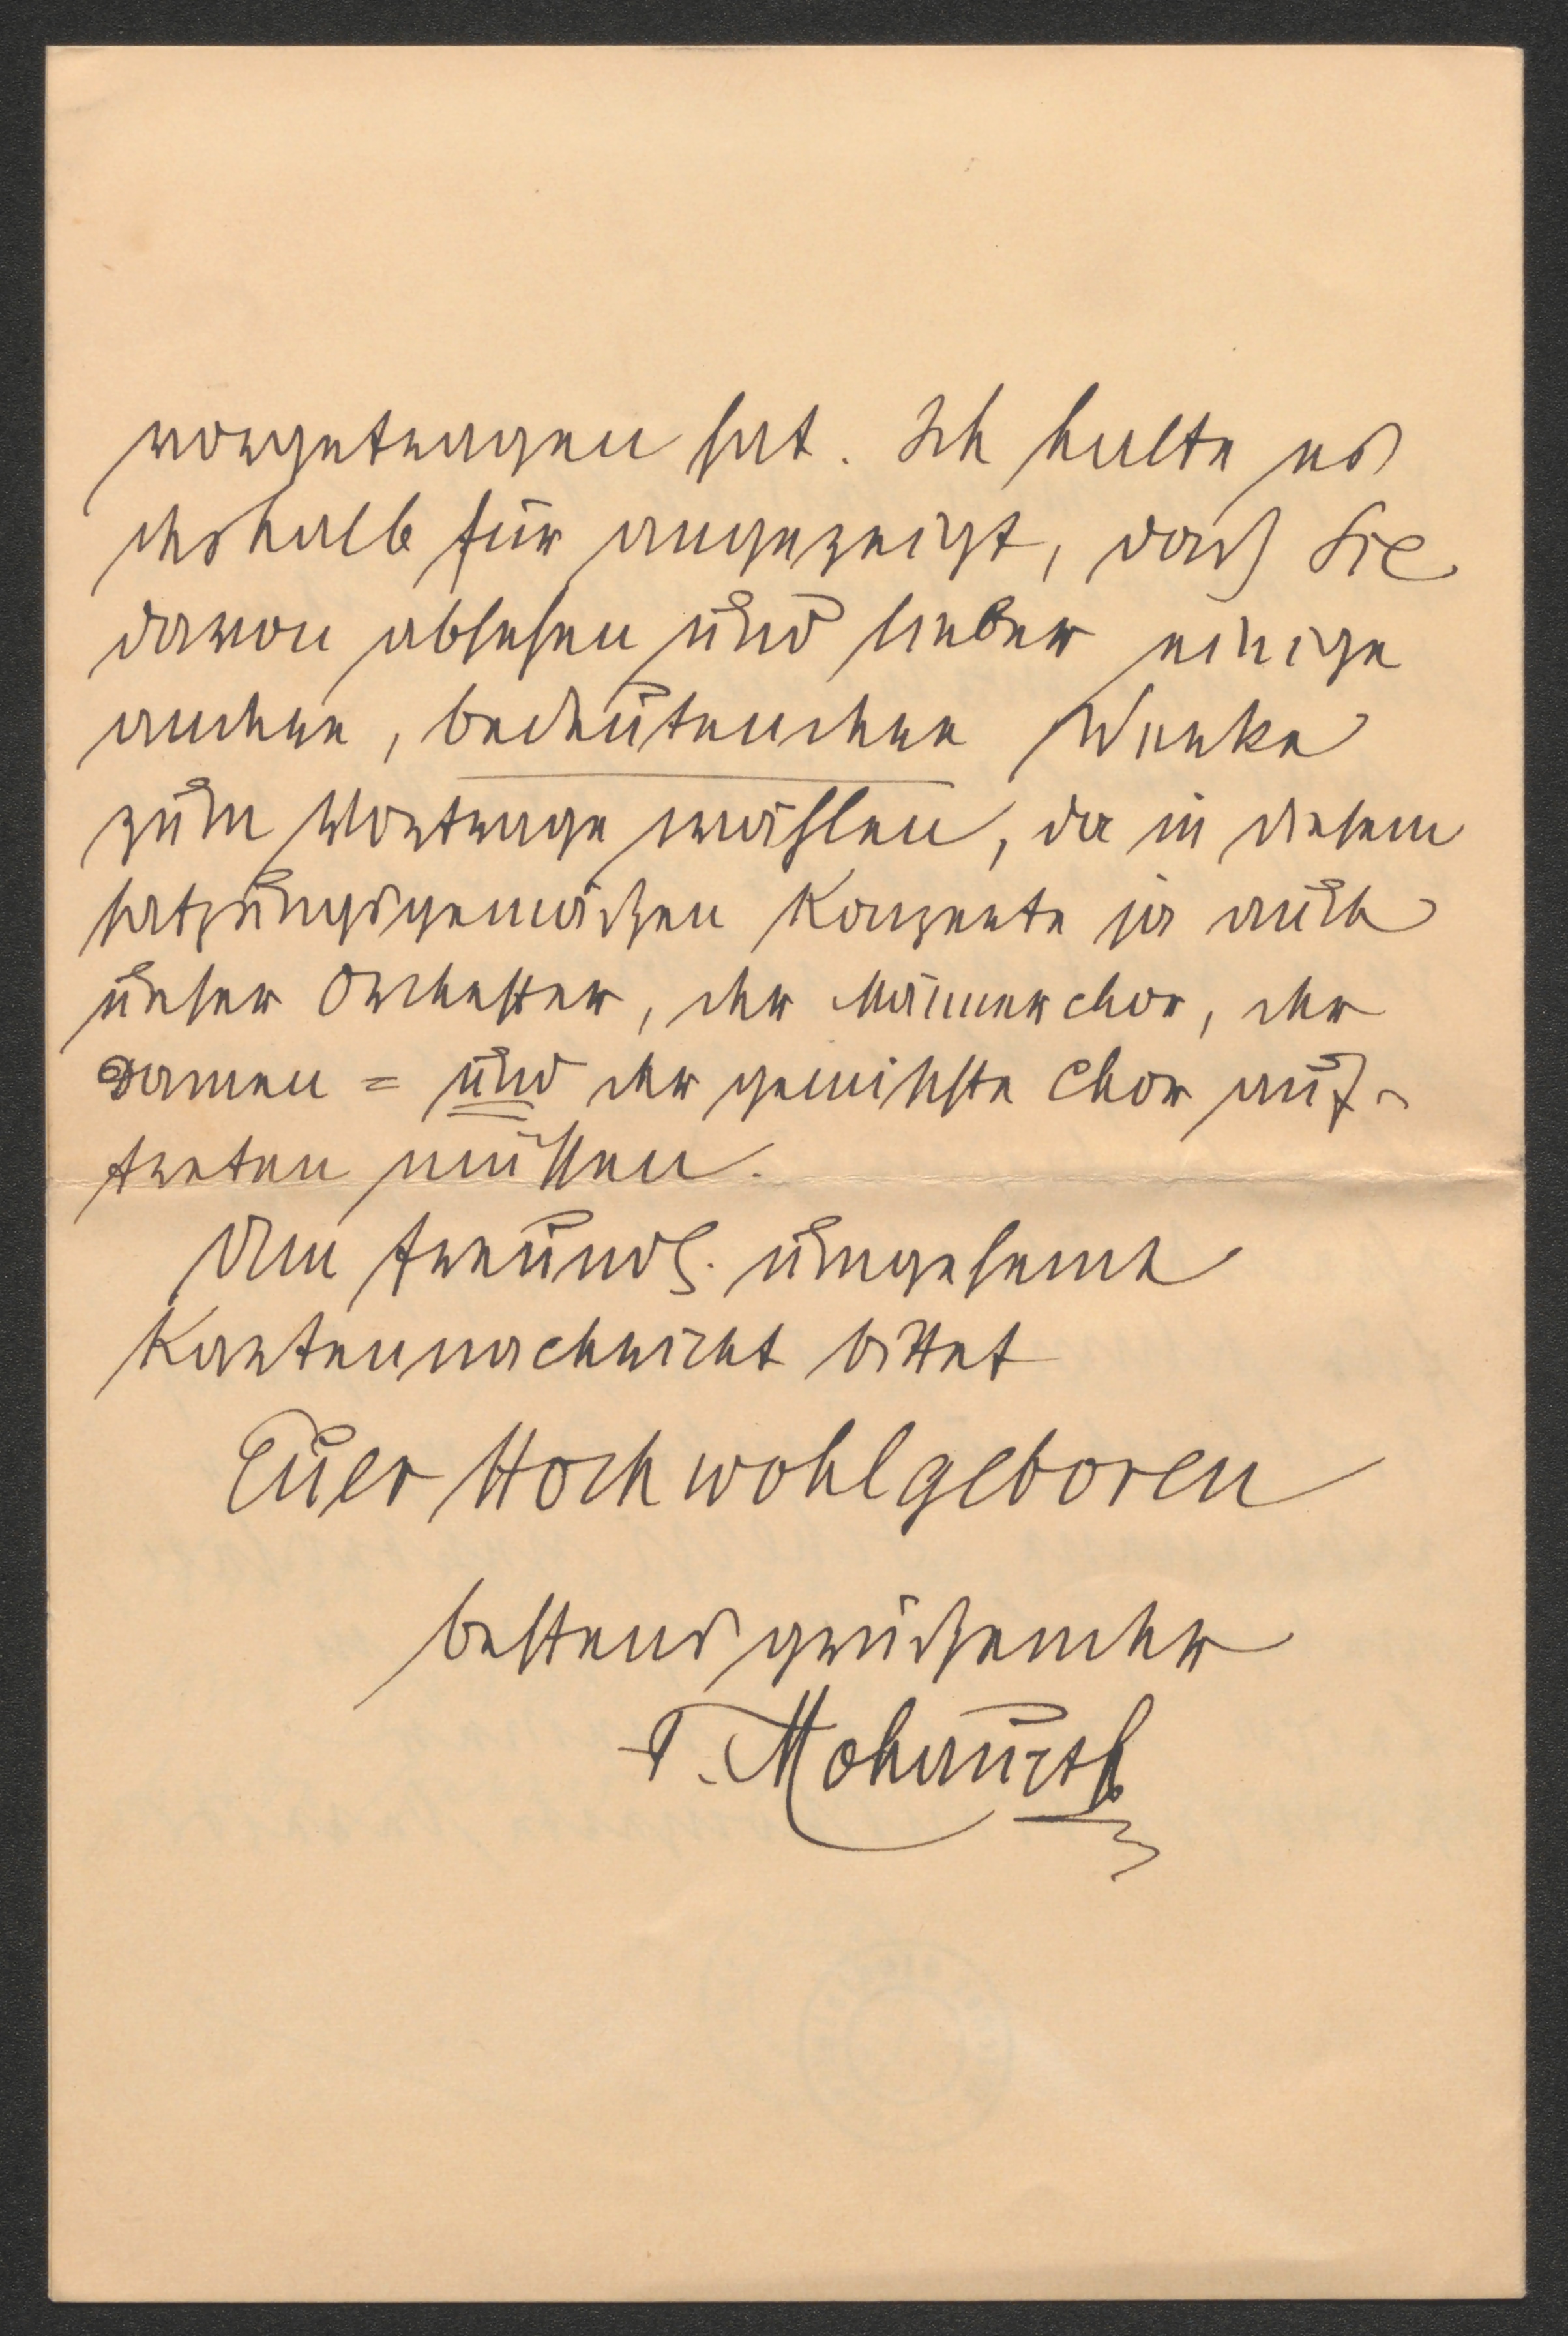 vorgetragen hat. Ich halte es
deshalb für angezeigt, daß Sie
davon absehen und lieber einige
andere, bedeutendere Werke
zum Vortrage wählen, da in diesem
satzungsgemäßen Konzerte ja auch
unser Orchester, der Männerchor, der
Damen= und der gemischte Chor auf-
treten müssen.
Um freundl. umgehende
Kartennachricht bittet
Euer Hochwohlgeboren
bestens grüßender
F. Mohaupt